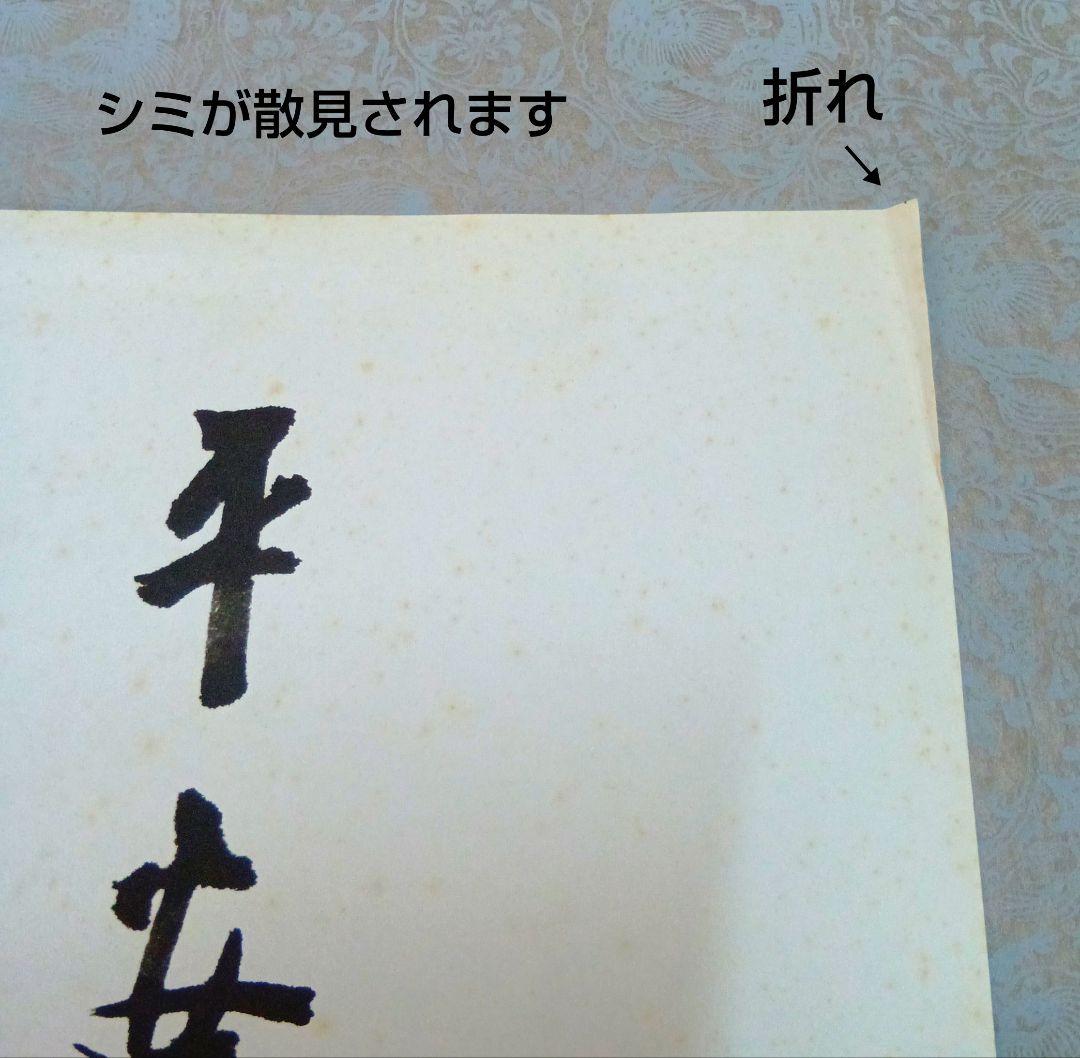 シミが散見されます
折れ
平